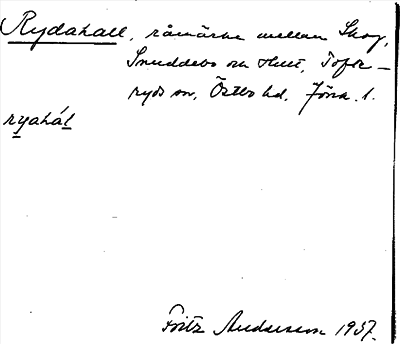 Rydahall, råmärke mellan Skog,
Snuddebo och Hult, Tofte-
ryds sn, Östbo hd, Jönk. l.
ryahál
Fritz Andersson 1937.